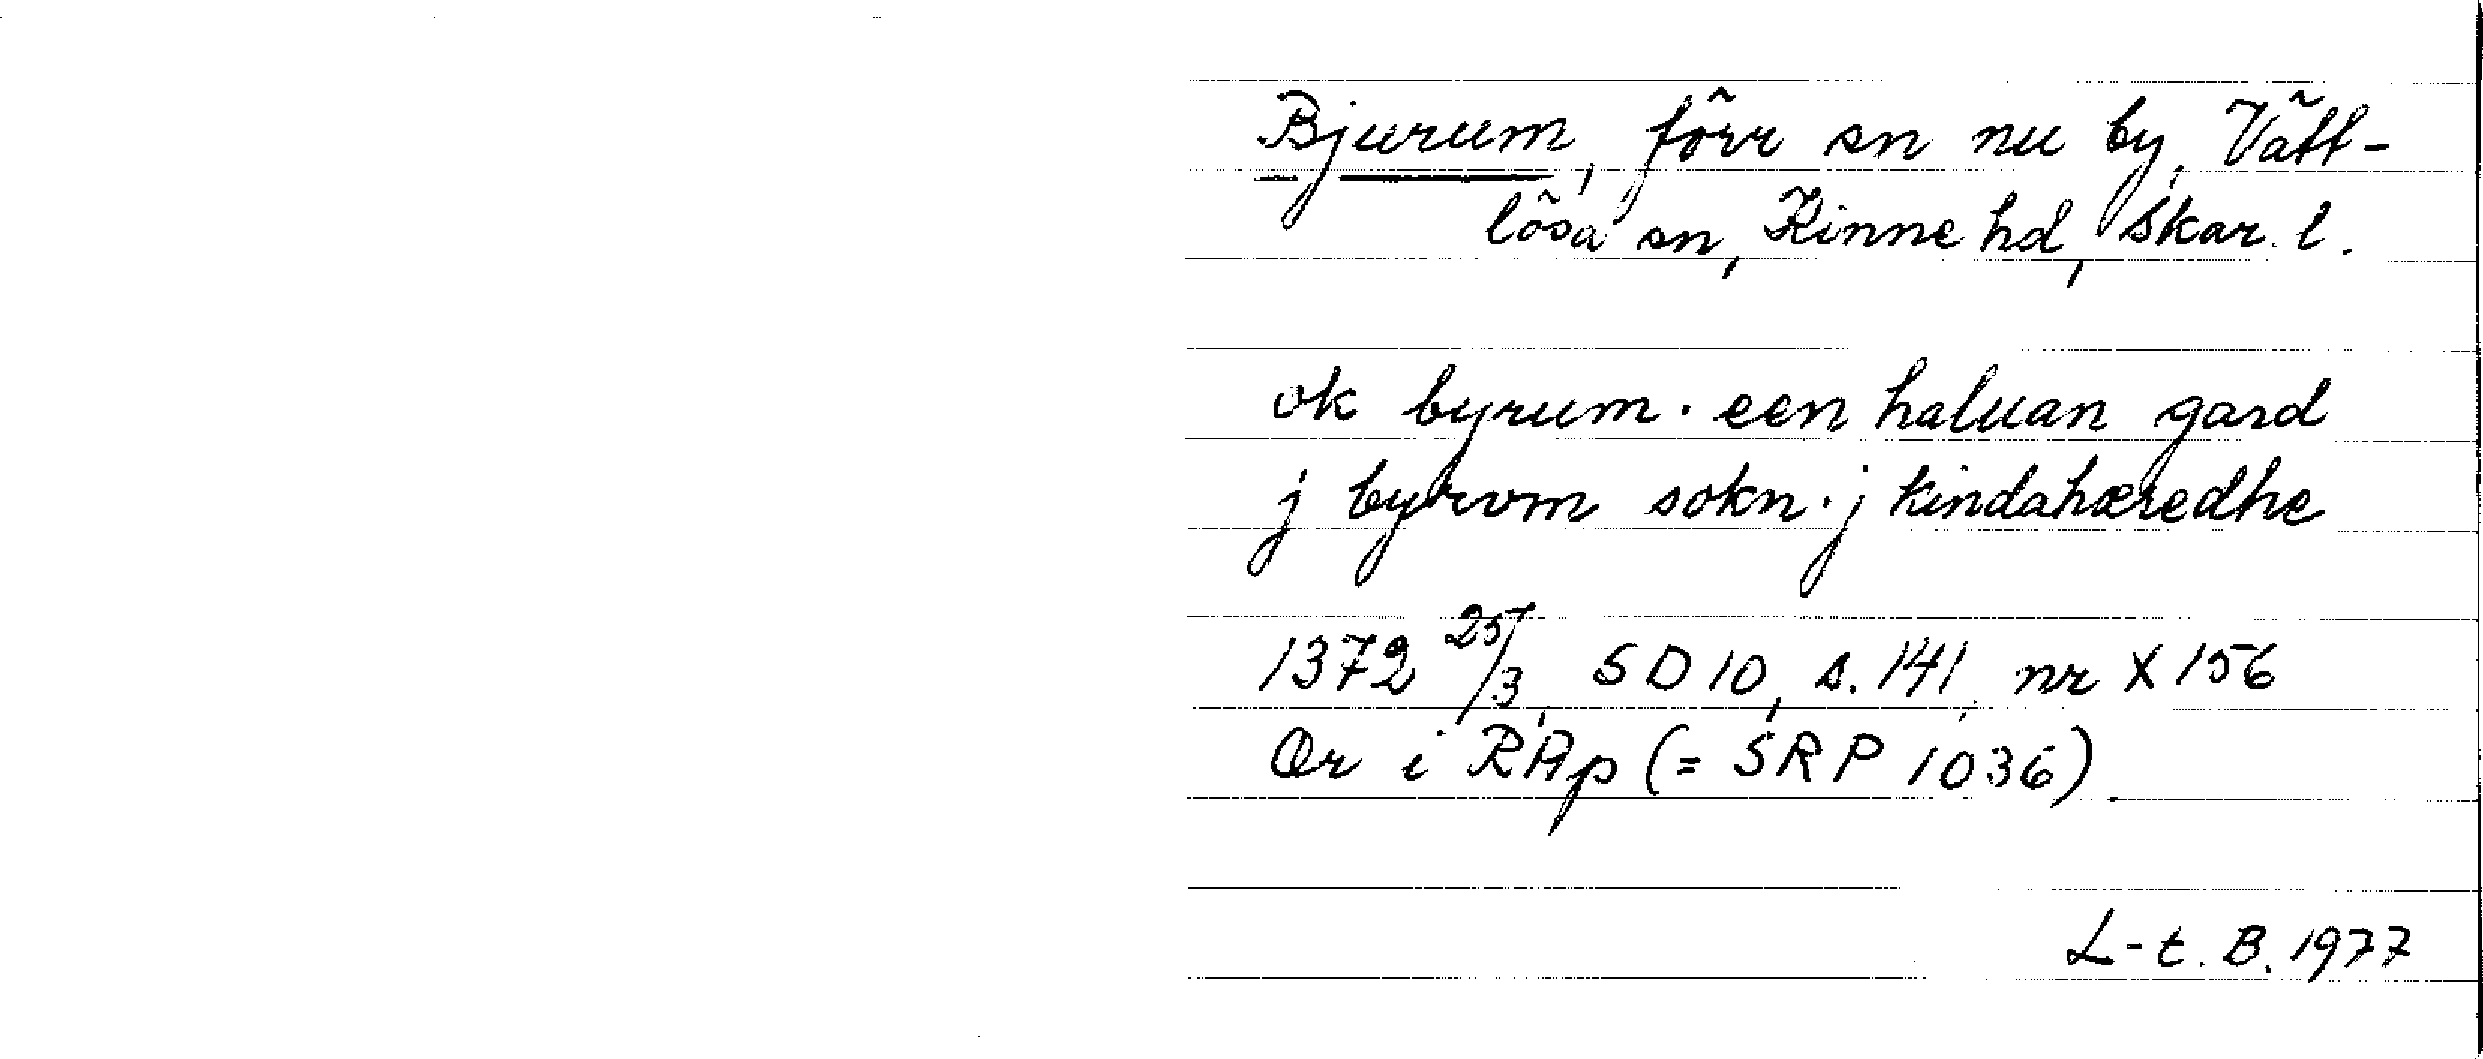 Bjurum, förr sn nu by, Vätt-
lösa sn, Kinne hd, Skar. l.
ok byrum · een haluan gard
j byrvm sokn · j kindahæredhe
1372 25/3, SD 10, s. 141, nr X 156
Or i RAp (= SRP 1036).
L-t. B. 1977